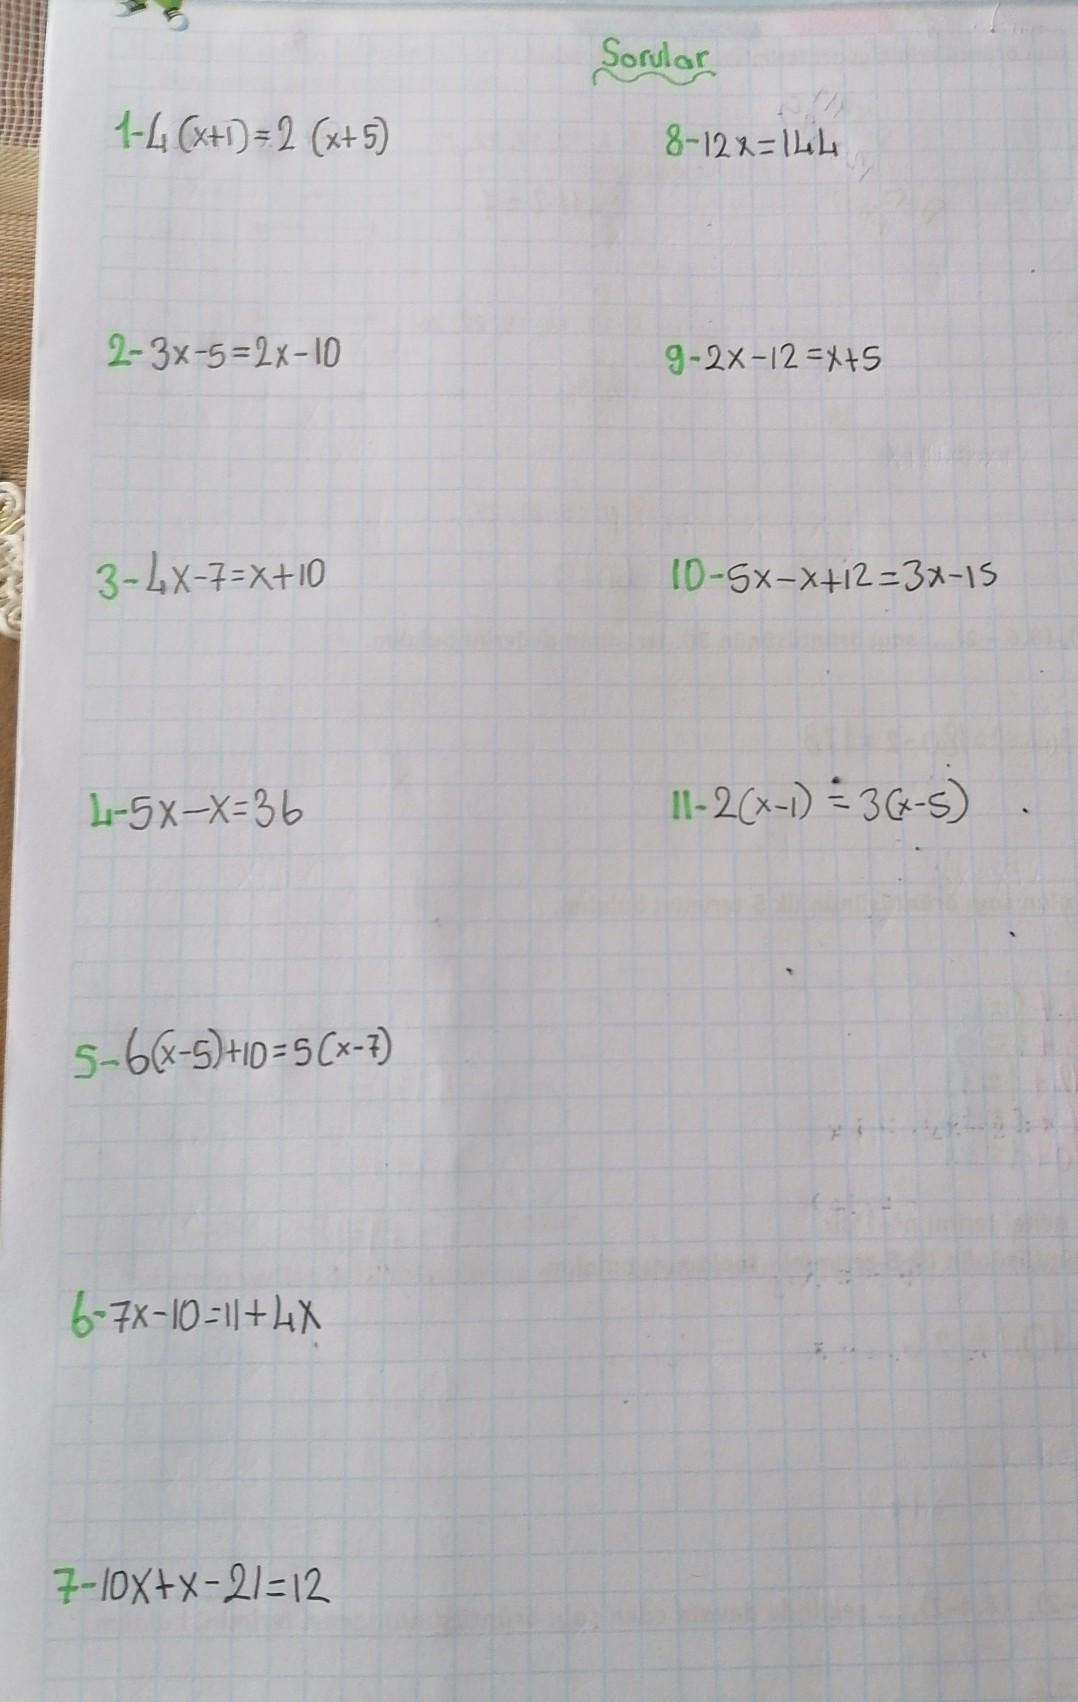 Sorular
1-4(x+1)=2 (x+5)
2-3x-5=2x-10
3-4x-7=x+10
4-5x-x=36
5-6(x-5)+10=5(x-7)
6-7x-10=11+4x
7-10x+x-21=12
8-12x=144
9-2x-12=x+5
10-5x-x+12=3x-15
11-2(x-1)=3(x-5)